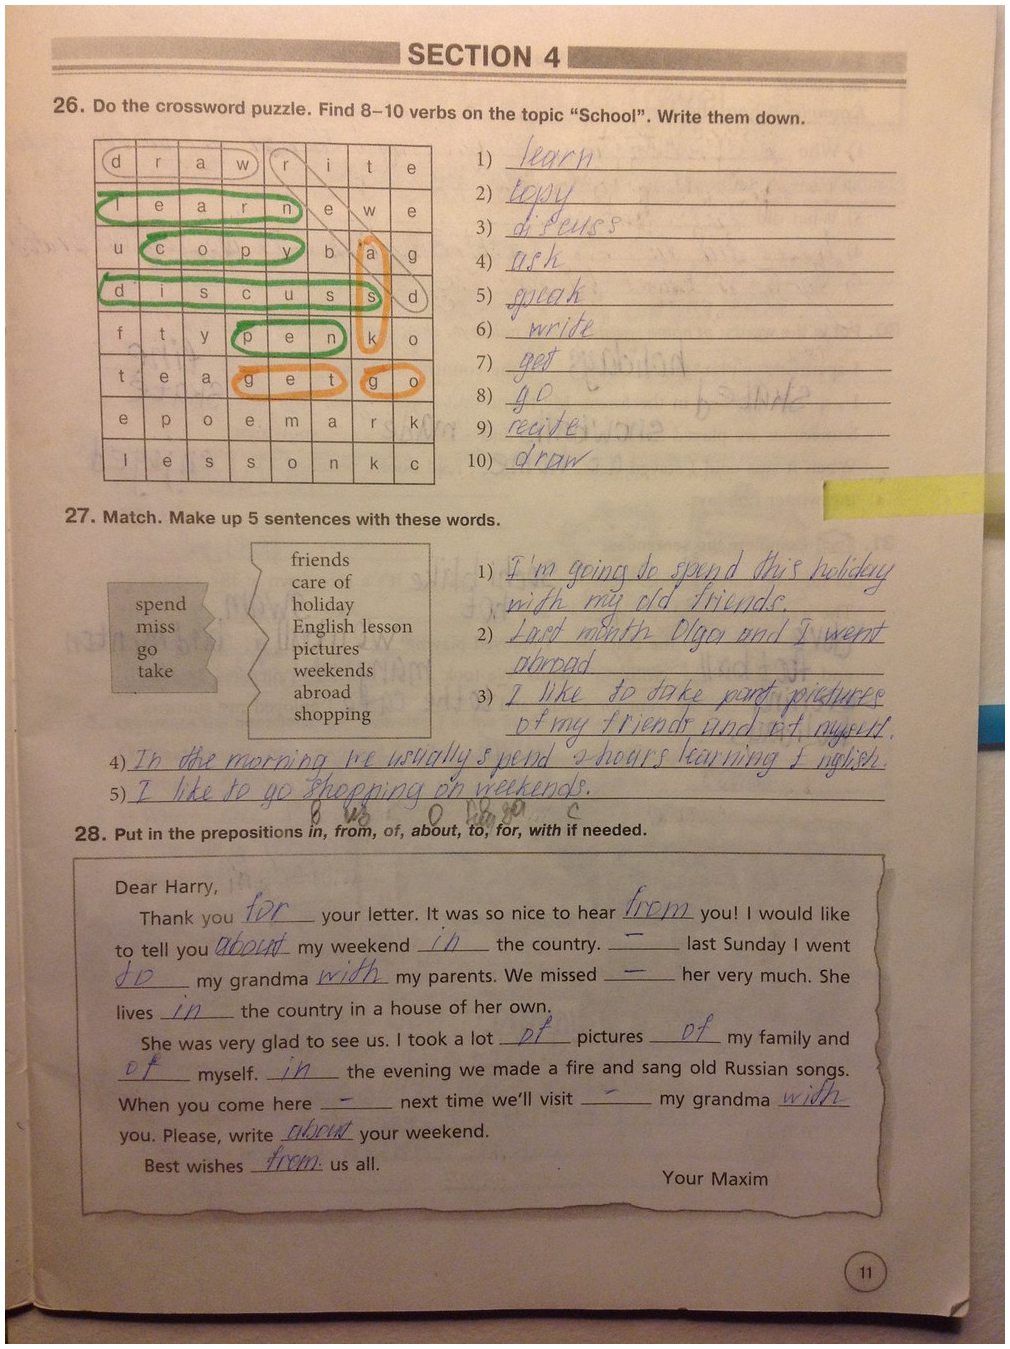 SECTION 4
26. Do the crossword puzzle. Find 8–10 verbs on the topic “School”. Write them down.
d r a w r i t e
l e a r n e w e
u c o p y b a g
d i s c u s s d
f t y p e n k o
t e a g e t g o
e p o e m a r k
l e s s o n k c
1) learn
2) copy
3) discuss
4) ask
5) speak
6) write
7) get
8) go
9) recite
10) draw
27. Match. Make up 5 sentences with these words.
spend
miss
go
take
friends
care of
holiday
English lesson
pictures
weekends
abroad
shopping
1) I'm going to spend this holiday
with my old friends.
2) Last month Olga and I went
abroad
3) I like to take pictures
of my friends and of myself.
4) In the morning we usually spend 2 hours learning English.
5) I like to go shopping on weekends.
в из о с
28. Put in the prepositions in, from, of, about, to, for, with if needed.
Dear Harry,
Thank you for your letter. It was so nice to hear from you! I would like
to tell you about my weekend in the country. – last Sunday I went
to my grandma with my parents. We missed – her very much. She
lives in the country in a house of her own.
She was very glad to see us. I took a lot of pictures of my family and
of myself. in the evening we made a fire and sang old Russian songs.
When you come here – next time we'll visit – my grandma with
you. Please, write about your weekend.
Best wishes from us all.
Your Maxim
11